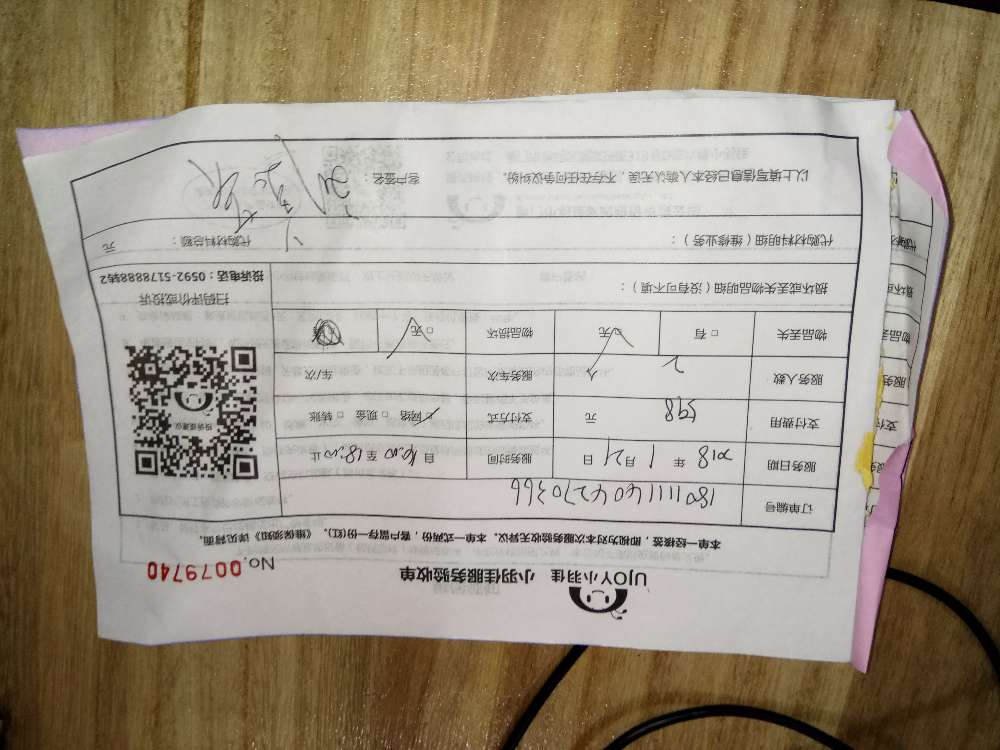 UJOY小羽佳 小羽佳服务验收单
No.0079740
本单一经核签，即视为对本次服务验收无异议。本单一式两份，客户留存一份(红)。《维保须知》详见背面。
订单编号 1801111404270366
服务日期 2018 年 1 月 21 日 服务时间 自 16:00 至 18:00 止
支付费用 598 元 支付方式 ☑网络 □现金 □转账
服务人数 2 人 服务车次 车/次
物品丢失 □有 ☑无 物品损坏 □无
损坏或丢失物品明细（没有可不填）：
扫码评价或投诉
投诉电话：0592-5178888转2
代购材料明细（维修业务）： 代购材料总额： 元
以上填写信息已经本人确认无误，不存在任何争议纠纷。 客户签名：